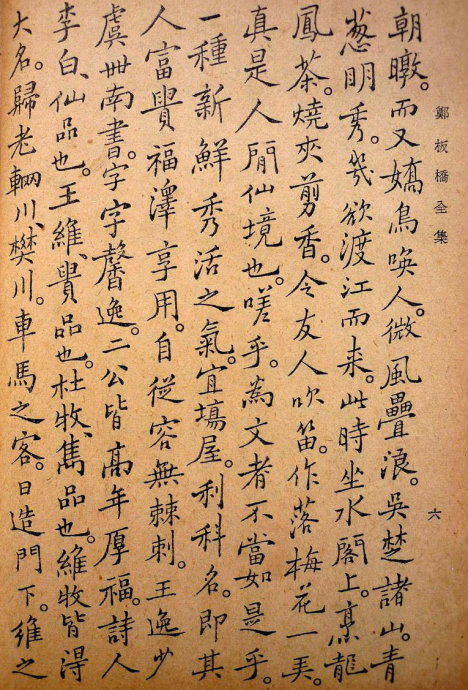 鄭板橋全集
六
朝暾。而又嬌鳥喚人。微風疊浪。吳楚諸山。青
葱明秀。幾欲渡江而来。此時坐水閣上。烹龍
鳳茶。燒夾剪香。令友人吹笛。作落梅花一弄。
真是人間仙境也。嗟乎。為文者不當如是乎。
一種新鮮秀活之氣。宜塲屋。利科名。即其
人富貴福澤享用。自從容無棘刺。王逸少
虞世南書。字字馨逸。二公皆高年厚福。詩人
李白、仙品也。王維、貴品也。杜牧、雋品也。維牧皆得
大名。歸老輞川、樊川。車馬之客。日造門下。維之